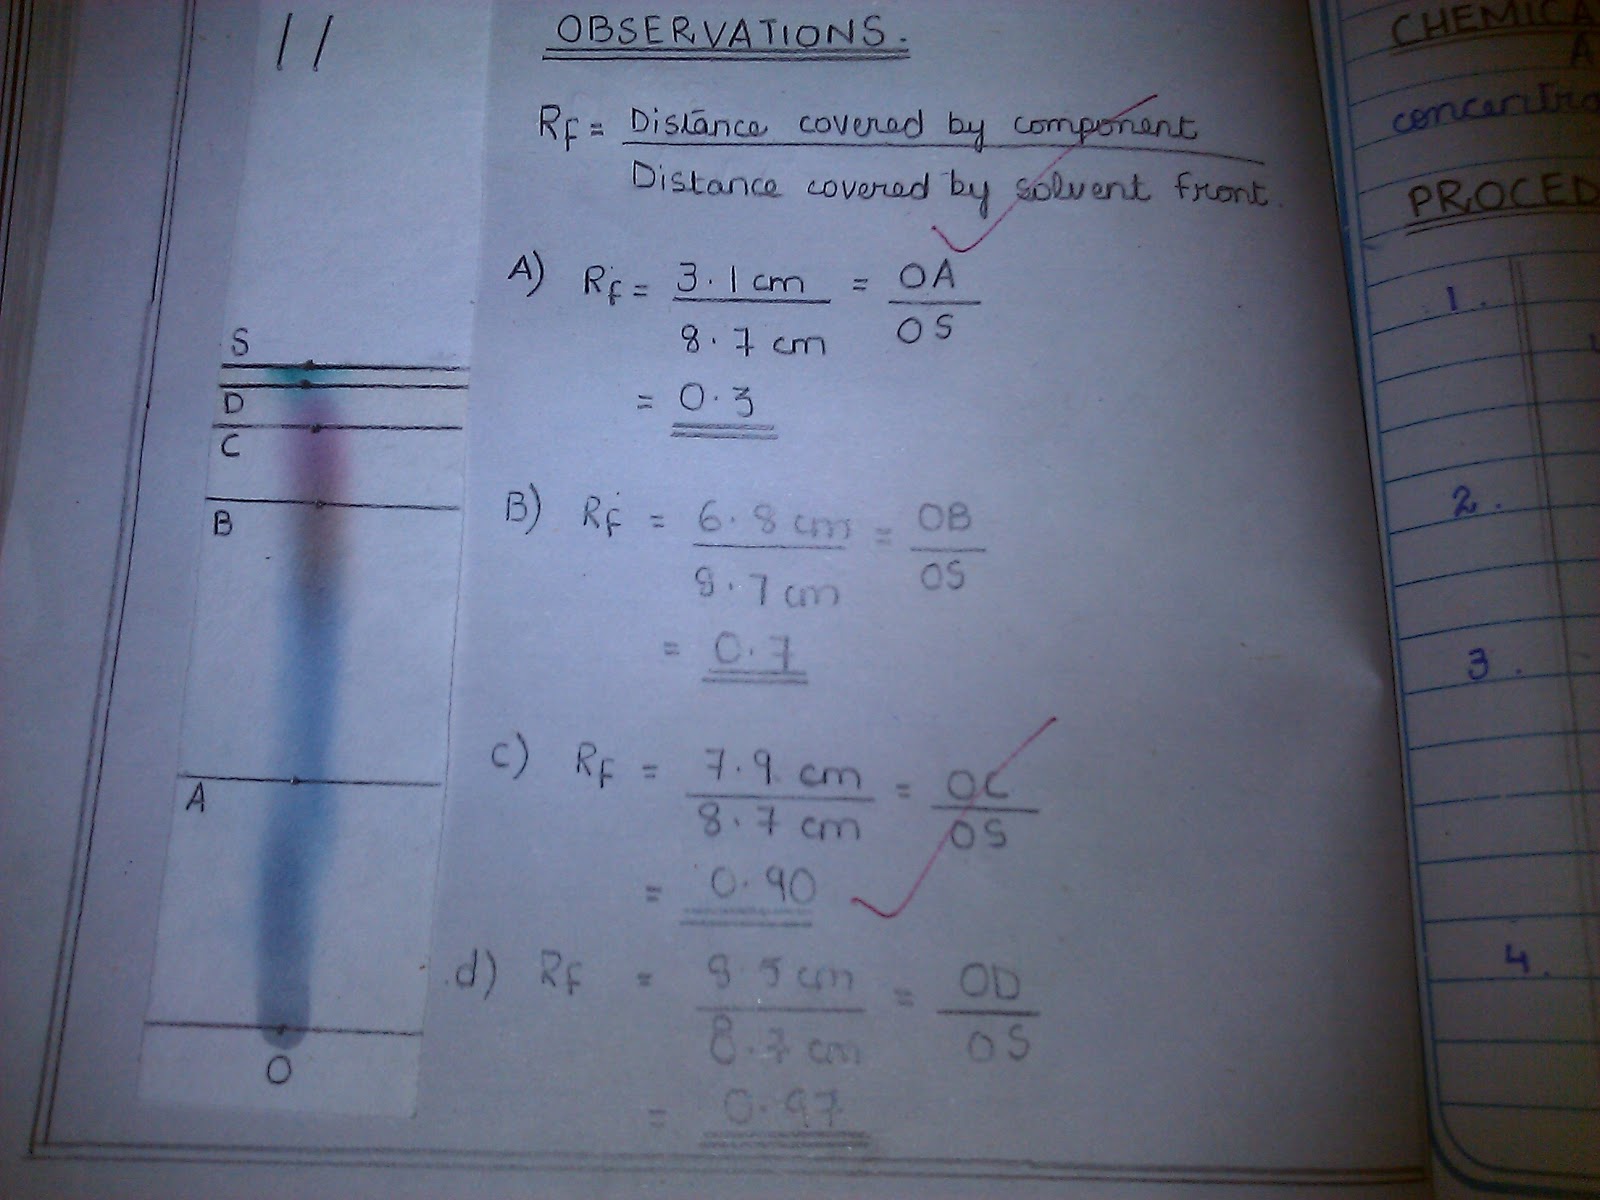 11
OBSERVATIONS.
Rf = Distance covered by component
Distance covered by solvent front.
A) Rf = 3.1 cm = OA
8.7 cm OS
= 0.3
B) Rf = 6.8 cm = OB
8.7 cm OS
= 0.7
c) Rf = 7.9 cm = OC
8.7 cm OS
= 0.90
d) Rf = 8.5 cm = OD
8.7 cm OS
= 0.97
S
D
C
B
A
O
CHEMICA
A
concentra
PROCED
1.
2.
3.
4.